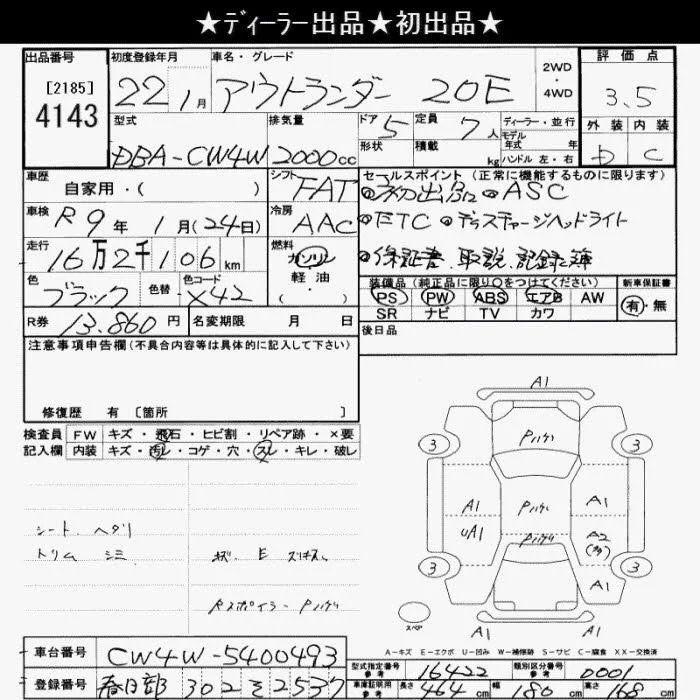 ★ディーラー出品★初出品★
出品番号
[2185]
4143
初度登録年月
22年1月
車名・グレード
アウトランダー 20E
2WD
・
4WD
評価点
3.5
外装 内装
D C
型式
DBA-CW4W
排気量
2000cc
ドア 5
形状
定員 7人
積載 kg
ディーラー・並行
モデル年式 年
ハンドル 左・右
車歴
自家用・( )
シフト
FAT
セールスポイント (正常に機能するものに限ります)
◎初出品 ◎ASC
◎ETC ◎ディスチャージヘッドライト
◎保証書、取説、記録簿
車検 R9年1月(24日)
冷房
AAC
走行
16万2千106km
燃料
ガソリン
軽・油
( )
色
ブラック
色替
色コード
X42
装備品 (純正品に限り○をつけてください)
PS PW ABS エアB AW
SR ナビ TV カワ
新車保証書
有・無
R券 13,860円
名変期限 月 日
後日品
注意事項申告欄(不具合内容等は具体的に記入して下さい)
修復歴 有 [箇所 ]
検査員 FW キズ・飛石・ヒビ割・リペア跡・×要
記入欄 内装 キズ・汚レ・コゲ・穴・スレ・キレ・破レ
シート ヘタリ
トリム シミ
Rスポイラー Pハゲ
A1
Pハゲ
3 3
A1 Pハゲ A1
UA1 Pハゲ A2
(多)
3 3
A1
スペア
A1 A1
A-キズ E-エクボ U-凹み W-補修跡 S-サビ C-腐食 XX-交換済
車台番号 CW4W-5400493
登録番号 春日部 302 そ 2537
型式指定番号
参考
16422
類別区分番号
参考
0001
車庫証明用
参考
長さ 464cm 幅 180cm 高さ 168cm